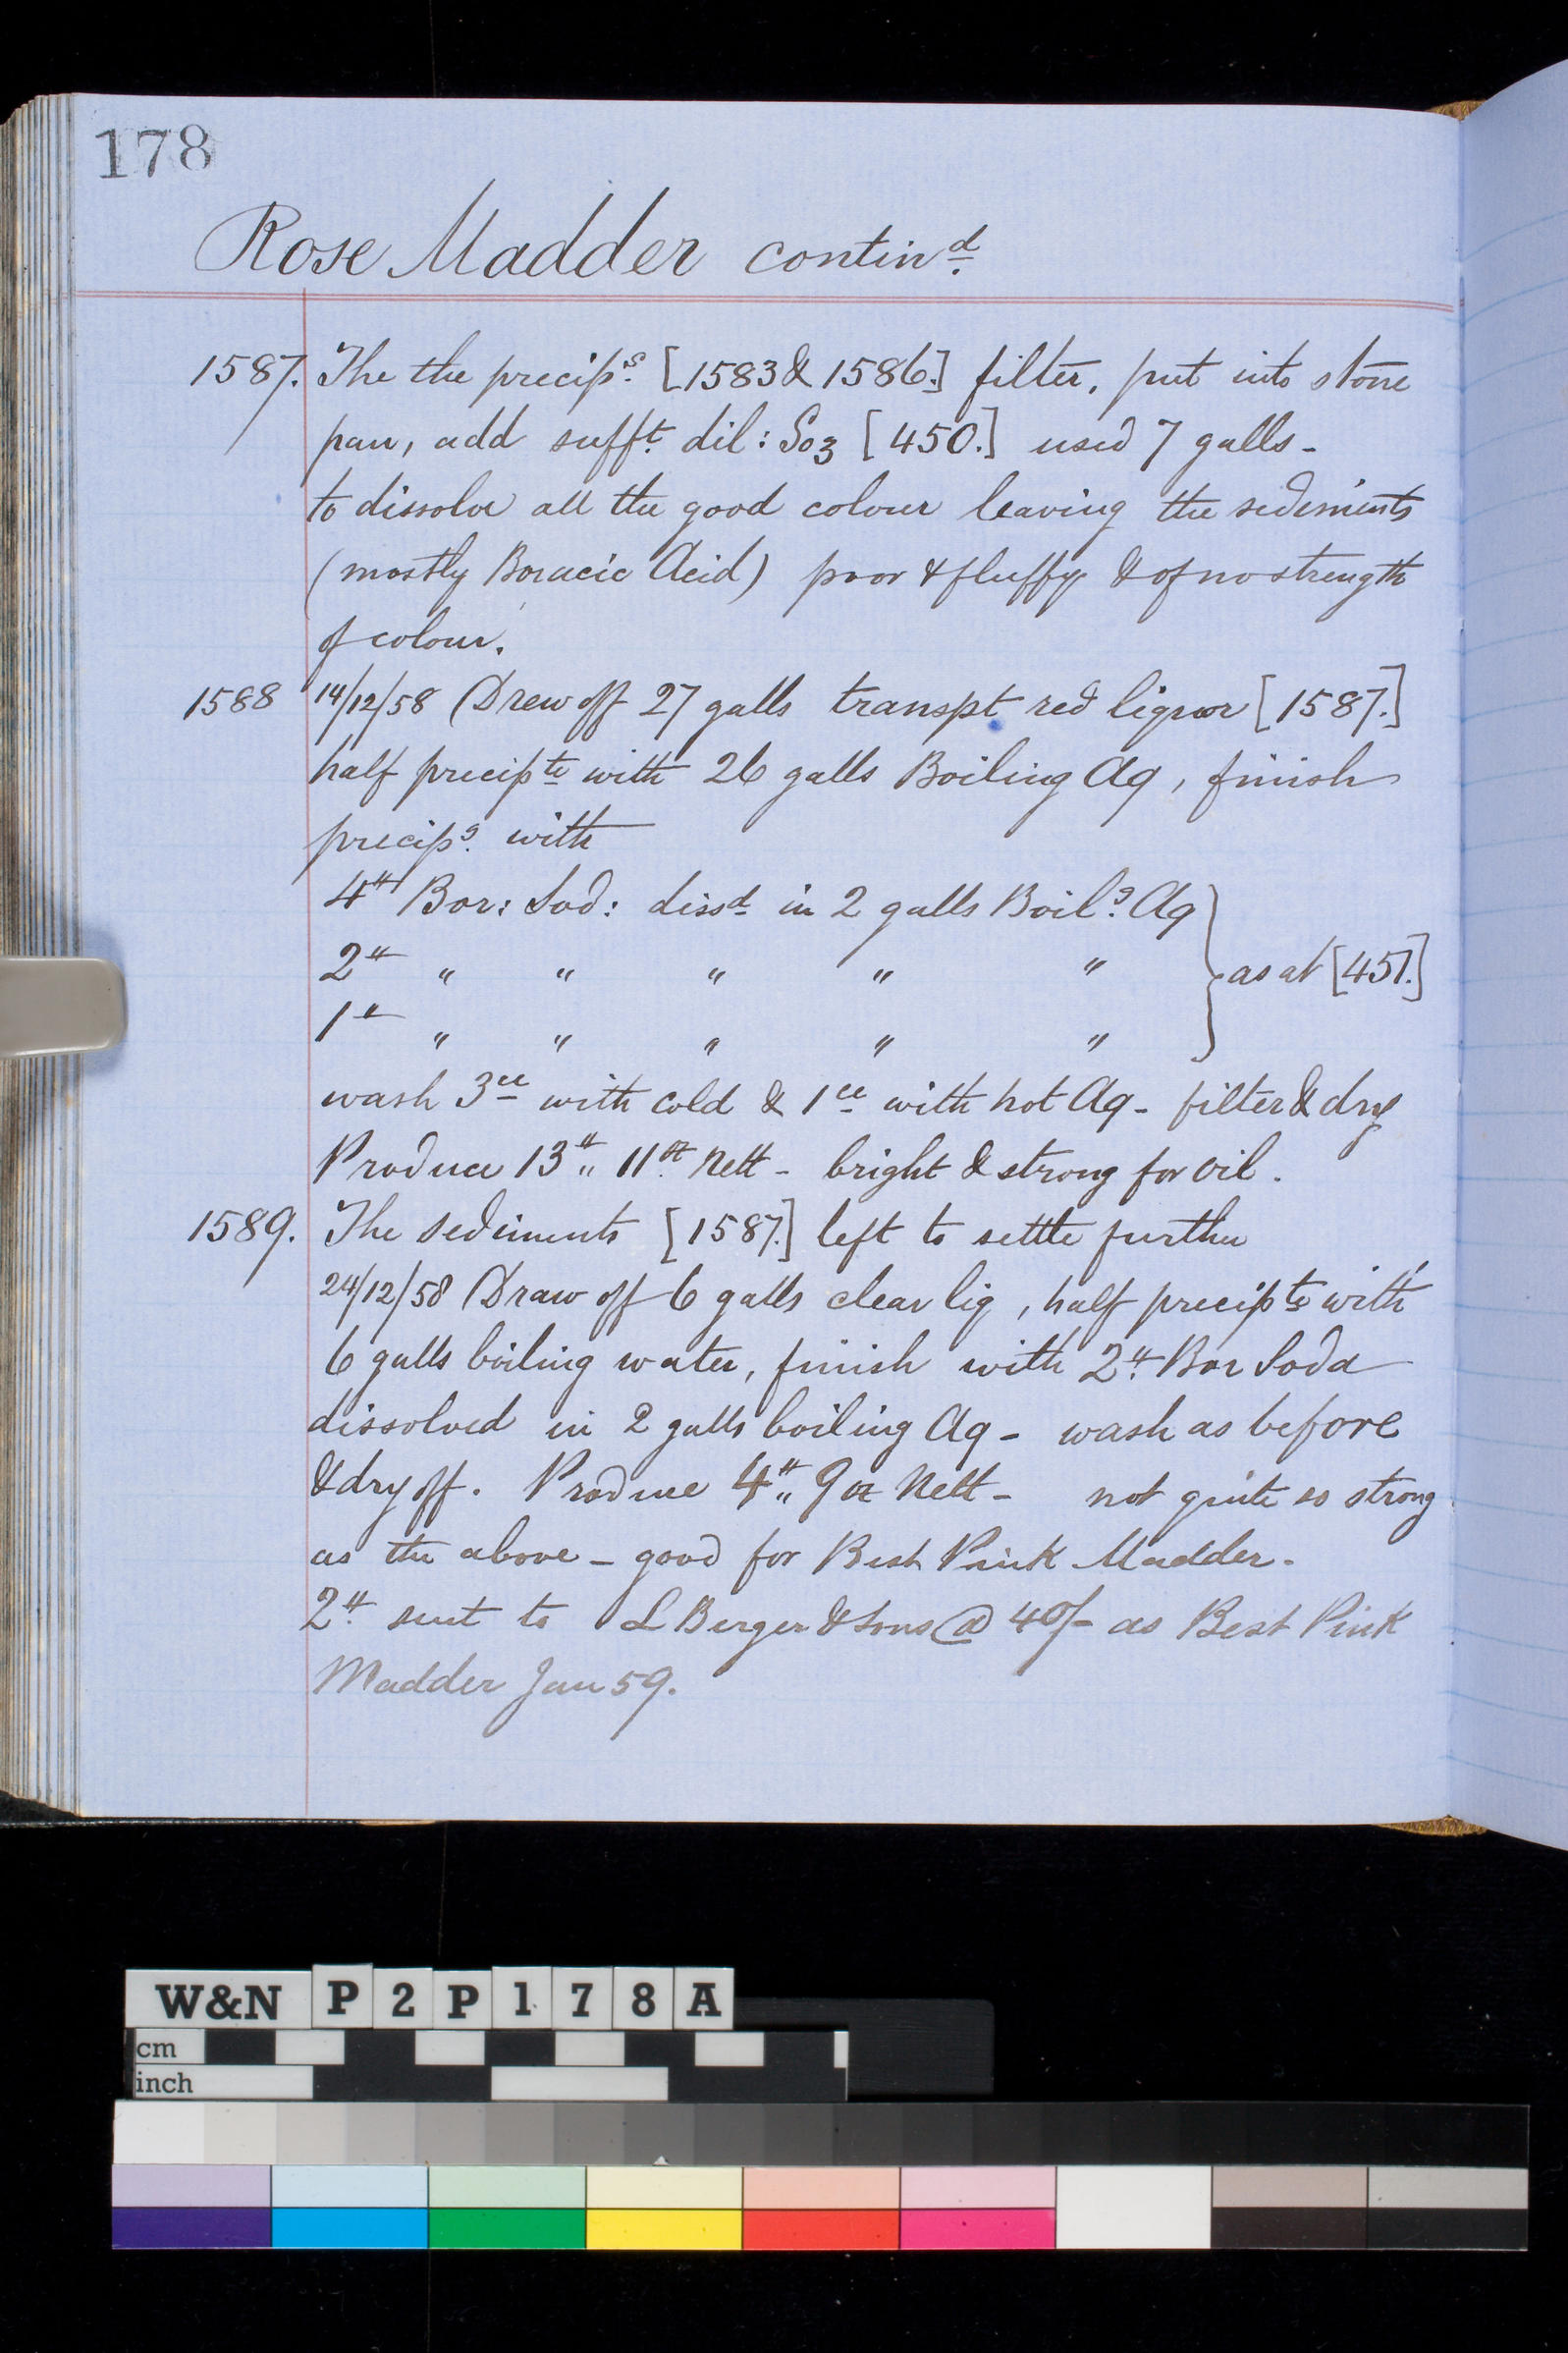 178
Rose Madder contin.d
1587. The the precip.s [1583 & 1586.] filter, put into stone
pan, add suff.t dil: So3 [450.] used 7 galls -
to dissolve all the good colour leaving the sediments
(mostly Boracic Acid) poor & fluffy & of no strength
of colour.
1588 14/12/58 Drew off 27 galls transpt red liquor [1587.]
half precipte with 26 galls Boiling Aq, finish
precip.g with
4# Bor: Sod: dissd in 2 galls Boil.g Aq
2# " " " " " } as at [451.]
1# " " " " "
wash 3ce with cold & 1ce with hot Aq - filter & dry
Produce 13# " 11oz Nett - bright & strong for oil.
1589. The sediments [1587.] left to settle further
24/12/58 Draw off 6 galls clear liq, half precipte with
6 galls boiling water, finish with 2# Bor Soda
dissolved in 2 galls boiling Aq - wash as before
& dry off. Produce 4# " 9 oz Nett - not quite so strong
as the above - good for Best Pink Madder -
2# sent to L Berger & Sons @ 40/- as Best Pink
Madder Jan 59.
W&N P 2 P 1 7 8 A
cm
inch